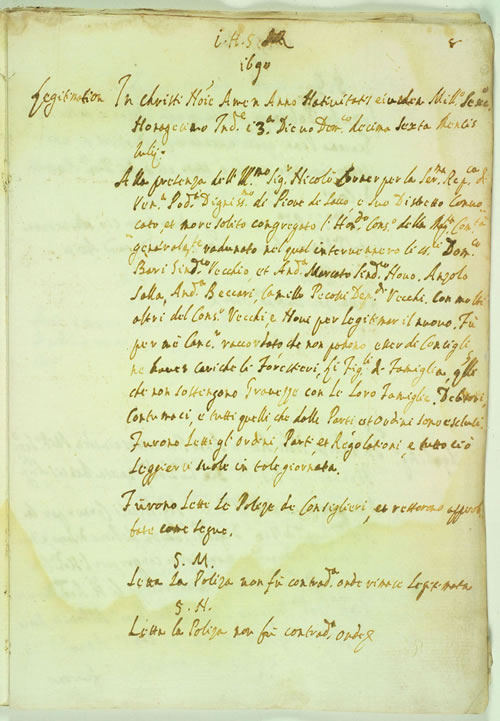 i. H. S. M 8
1690
Legitimation In Christi Hoie Amen Anno Nativitatis eiusdem Mill.o Sex.o
Nonagesimo Ind.e 13.a Die vo Dom.co decima sexta Mensis
Iulij.
Alla presenza dell' Ill.mo Sig.r Nicolò Corner per la Ser.ma Rep.ca di
Ven.a Pod.à Digniss.o di Piove di Sacco e suo Distretto Convo
cato, et more solito congregato l' Hon.do Cons.o della Mag.ca Com.tà
general.te radunato nel qual intervennero li ss.ri Dom.co
Bari Sind.co Vecchio et And.a Mercato Sind.co Novo. Anzolo
Salla, And.a Beccari, Camillo Pecotti Dep.ti Vecchi. Con molti
altri del Cons.o Vecchi, e Novi per legitimar il nuovo. Fù
per me Canc.r raccordato, che non potono esser di Consigli
ne haver carichi li Forestieri, li Figli di Famiglia, q̃lli
che non sostengono Gravezze con le Loro Famiglie. Debitori,
Contumaci, e tutti quelli, che dalle Parti et Ordini sono esclusi.
Furono Letti gl' Ordini, Parti, et Regolationi, e tutto ciò
Leggier si suole in tale giornata.
Fùrono Lette Le Polize de Consiglieri, et restorno appro
bate come segue.
S. M.
Letta La Poliza non fù contrad.a onde rimase Legimata
S. H.
Letta la Poliza non fù contrad.a onde